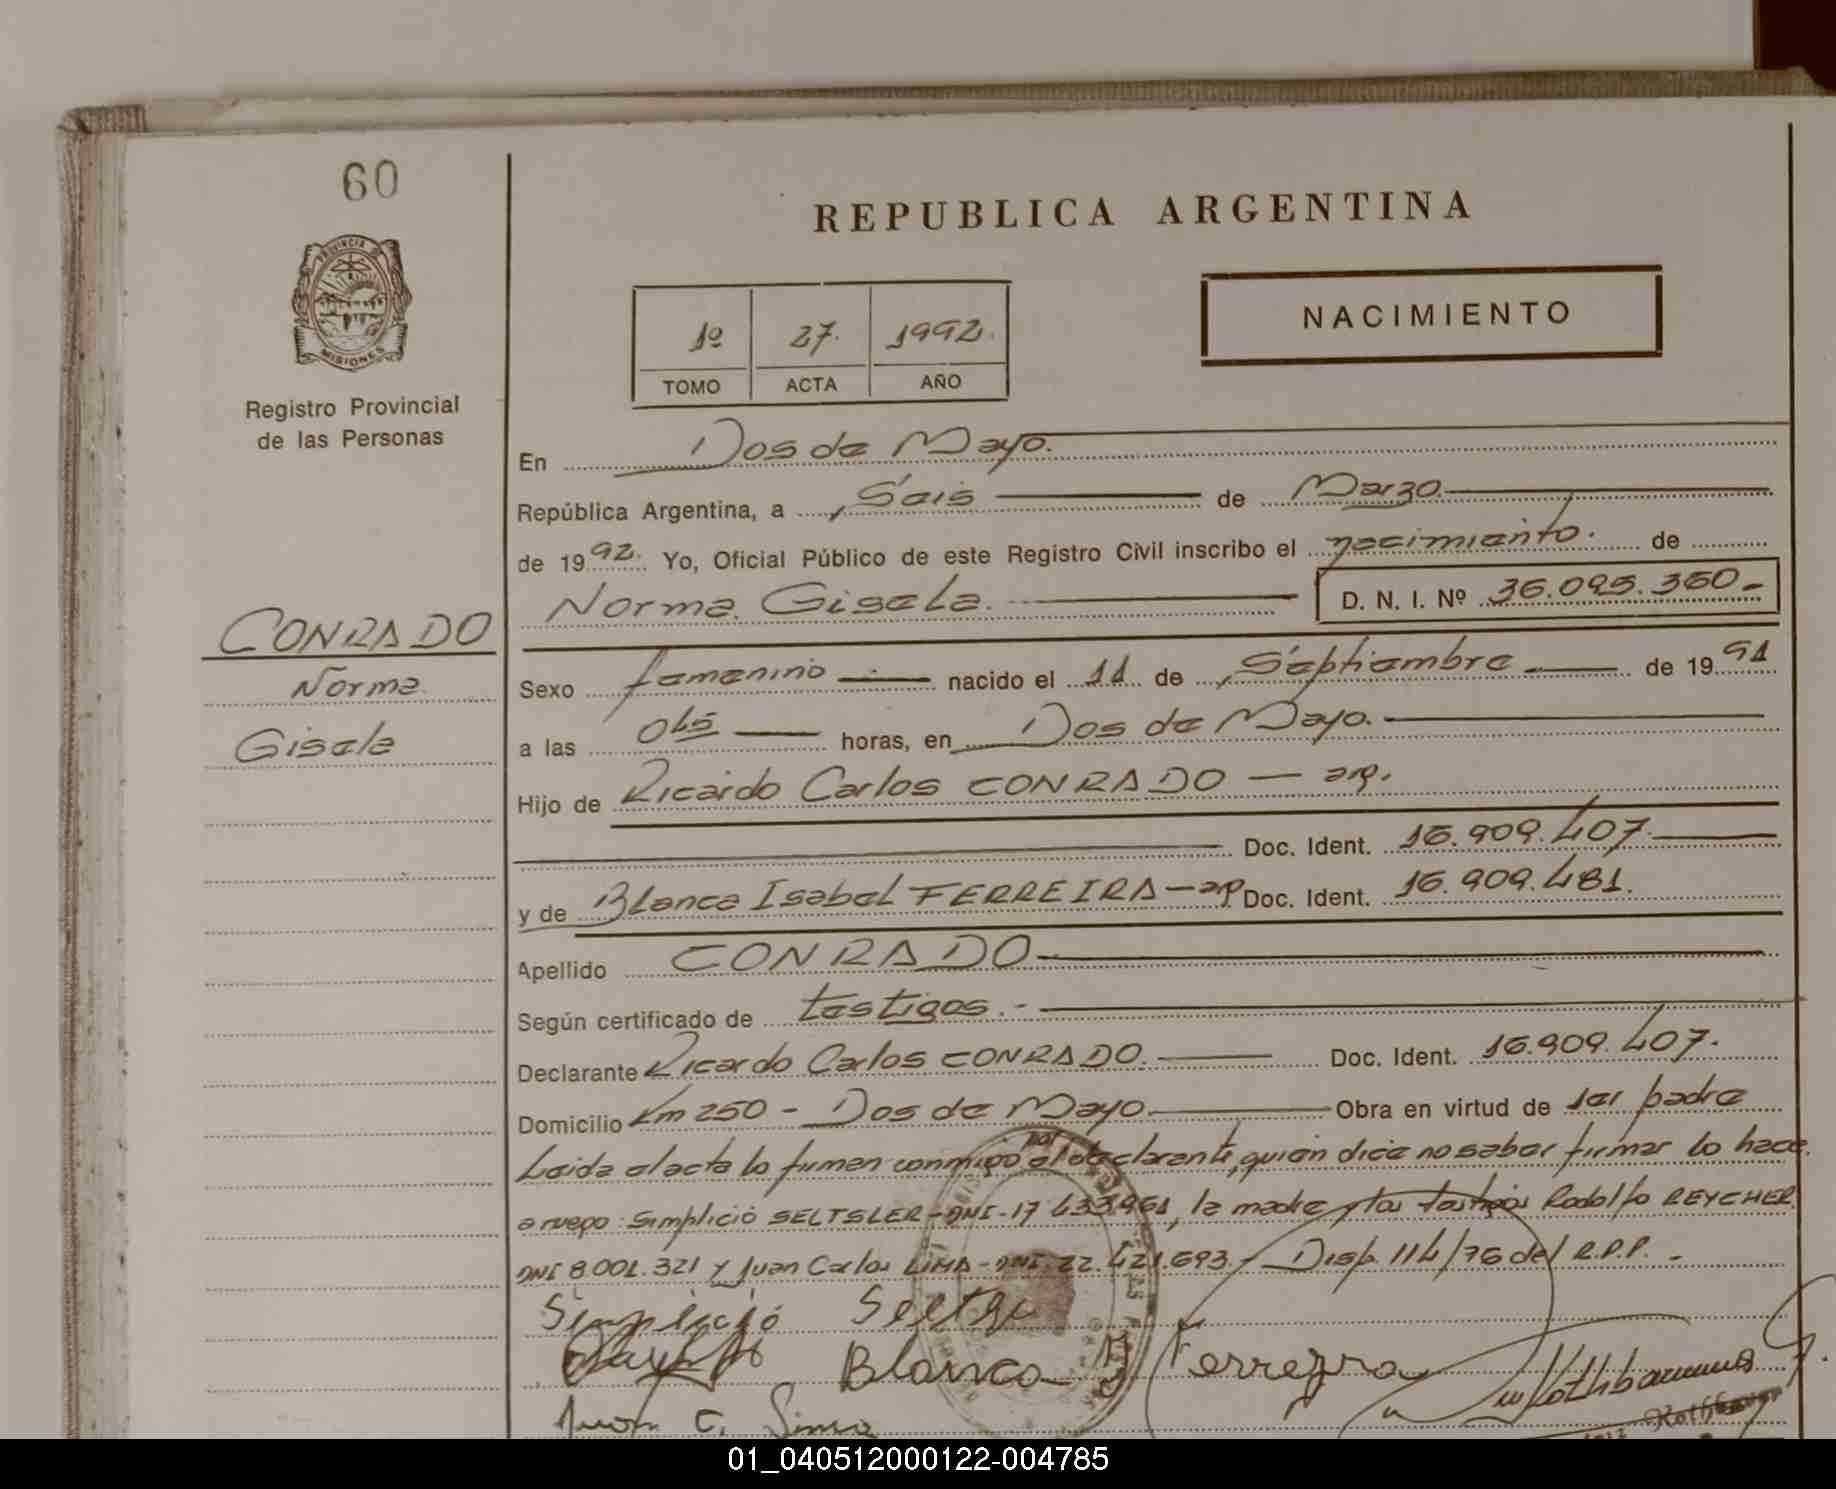 60
PROVINCIA DE
MISIONES
Registro Provincial
de las Personas
CONRADO
Norma
Gisela
REPUBLICA ARGENTINA
NACIMIENTO
1º 27. 1992.
TOMO ACTA AÑO
En Dos de Mayo.
República Argentina, a Seis de Marzo
de 1992. Yo, Oficial Público de este Registro Civil inscribo el nacimiento. de
Norma Gisela. D. N. I. Nº 36.095.360-
Sexo femenino nacido el 11 de Septiembre de 1991
a las 0hs horas, en Dos de Mayo.
Hijo de Ricardo Carlos CONRADO — arg.
Doc. Ident. 16.909.407.
y de Blanca Isabel FERREIRA — arg Doc. Ident. 16.909.481.
Apellido CONRADO
Según certificado de testigos.-
Declarante Ricardo Carlos CONRADO. Doc. Ident. 16.909.407.
Domicilio Km 250 - Dos de Mayo. Obra en virtud de ser padre
Leida el acta lo firman conmigo el declarante, quien dice no saber firmar lo hace
a ruego: Simplicio SELTSLER-DNI-17.433.961, la madre y los testigos Rodolfo REYCHER
DNI 8.001.321 y Juan Carlos LIMA-DNI 22.421.693.- Disp. 114/76 del R.P.P.-
Simplicio
Blanca Ferreyra
Juan C. Lima
01_040512000122-004785